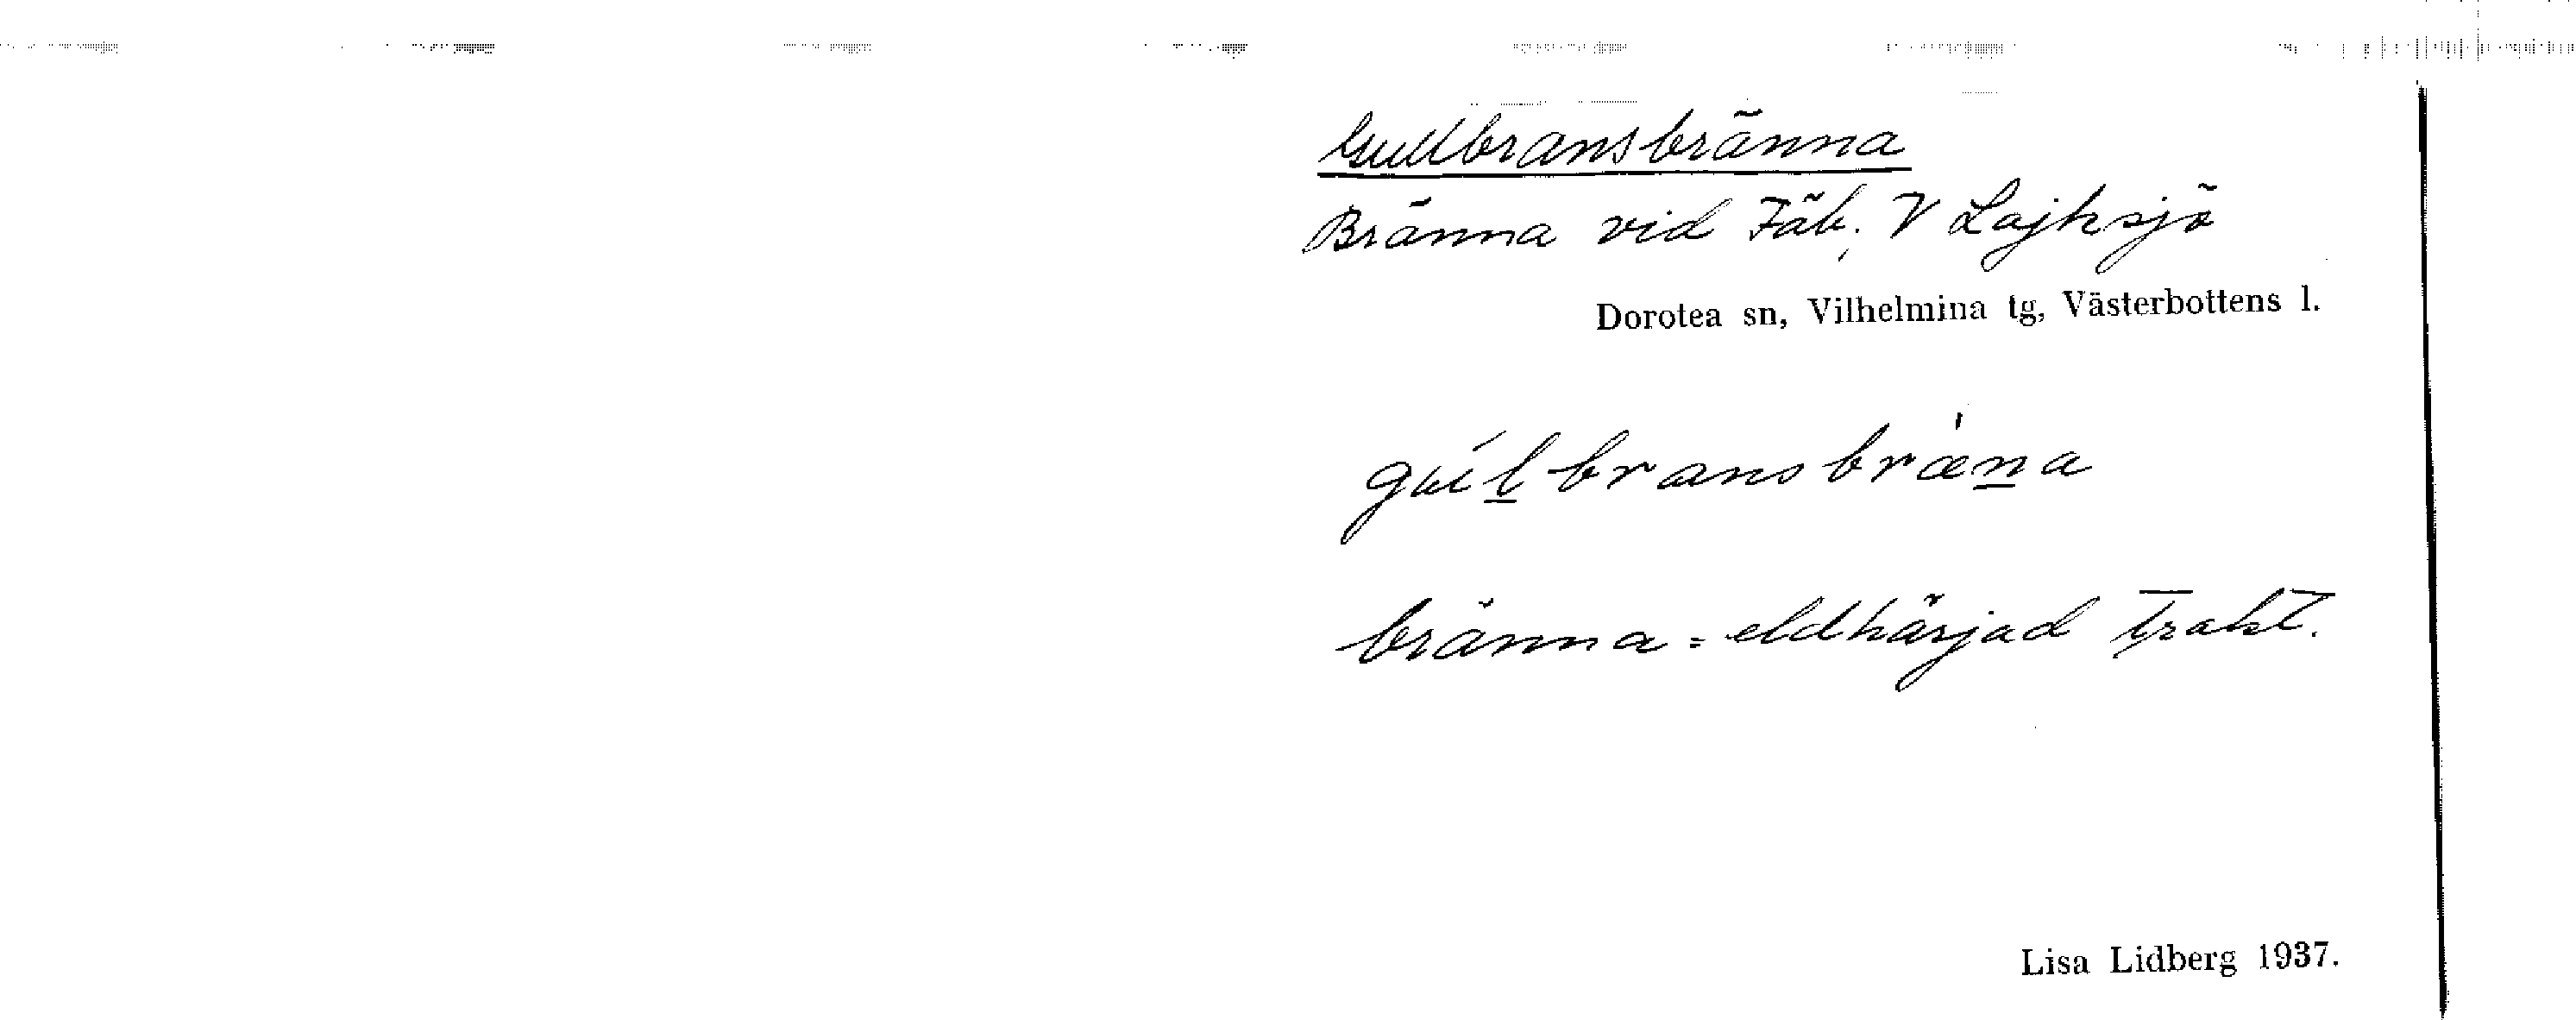 Gullbransbränna
Bränna vid Fäb. V Lajksjö
Dorotea sn, Vilhelmina tg, Västerbottens l.
gúl̲bransbræ̀n̲a
bränna = eldhärjad trakt.
Lisa Lidberg 1937.